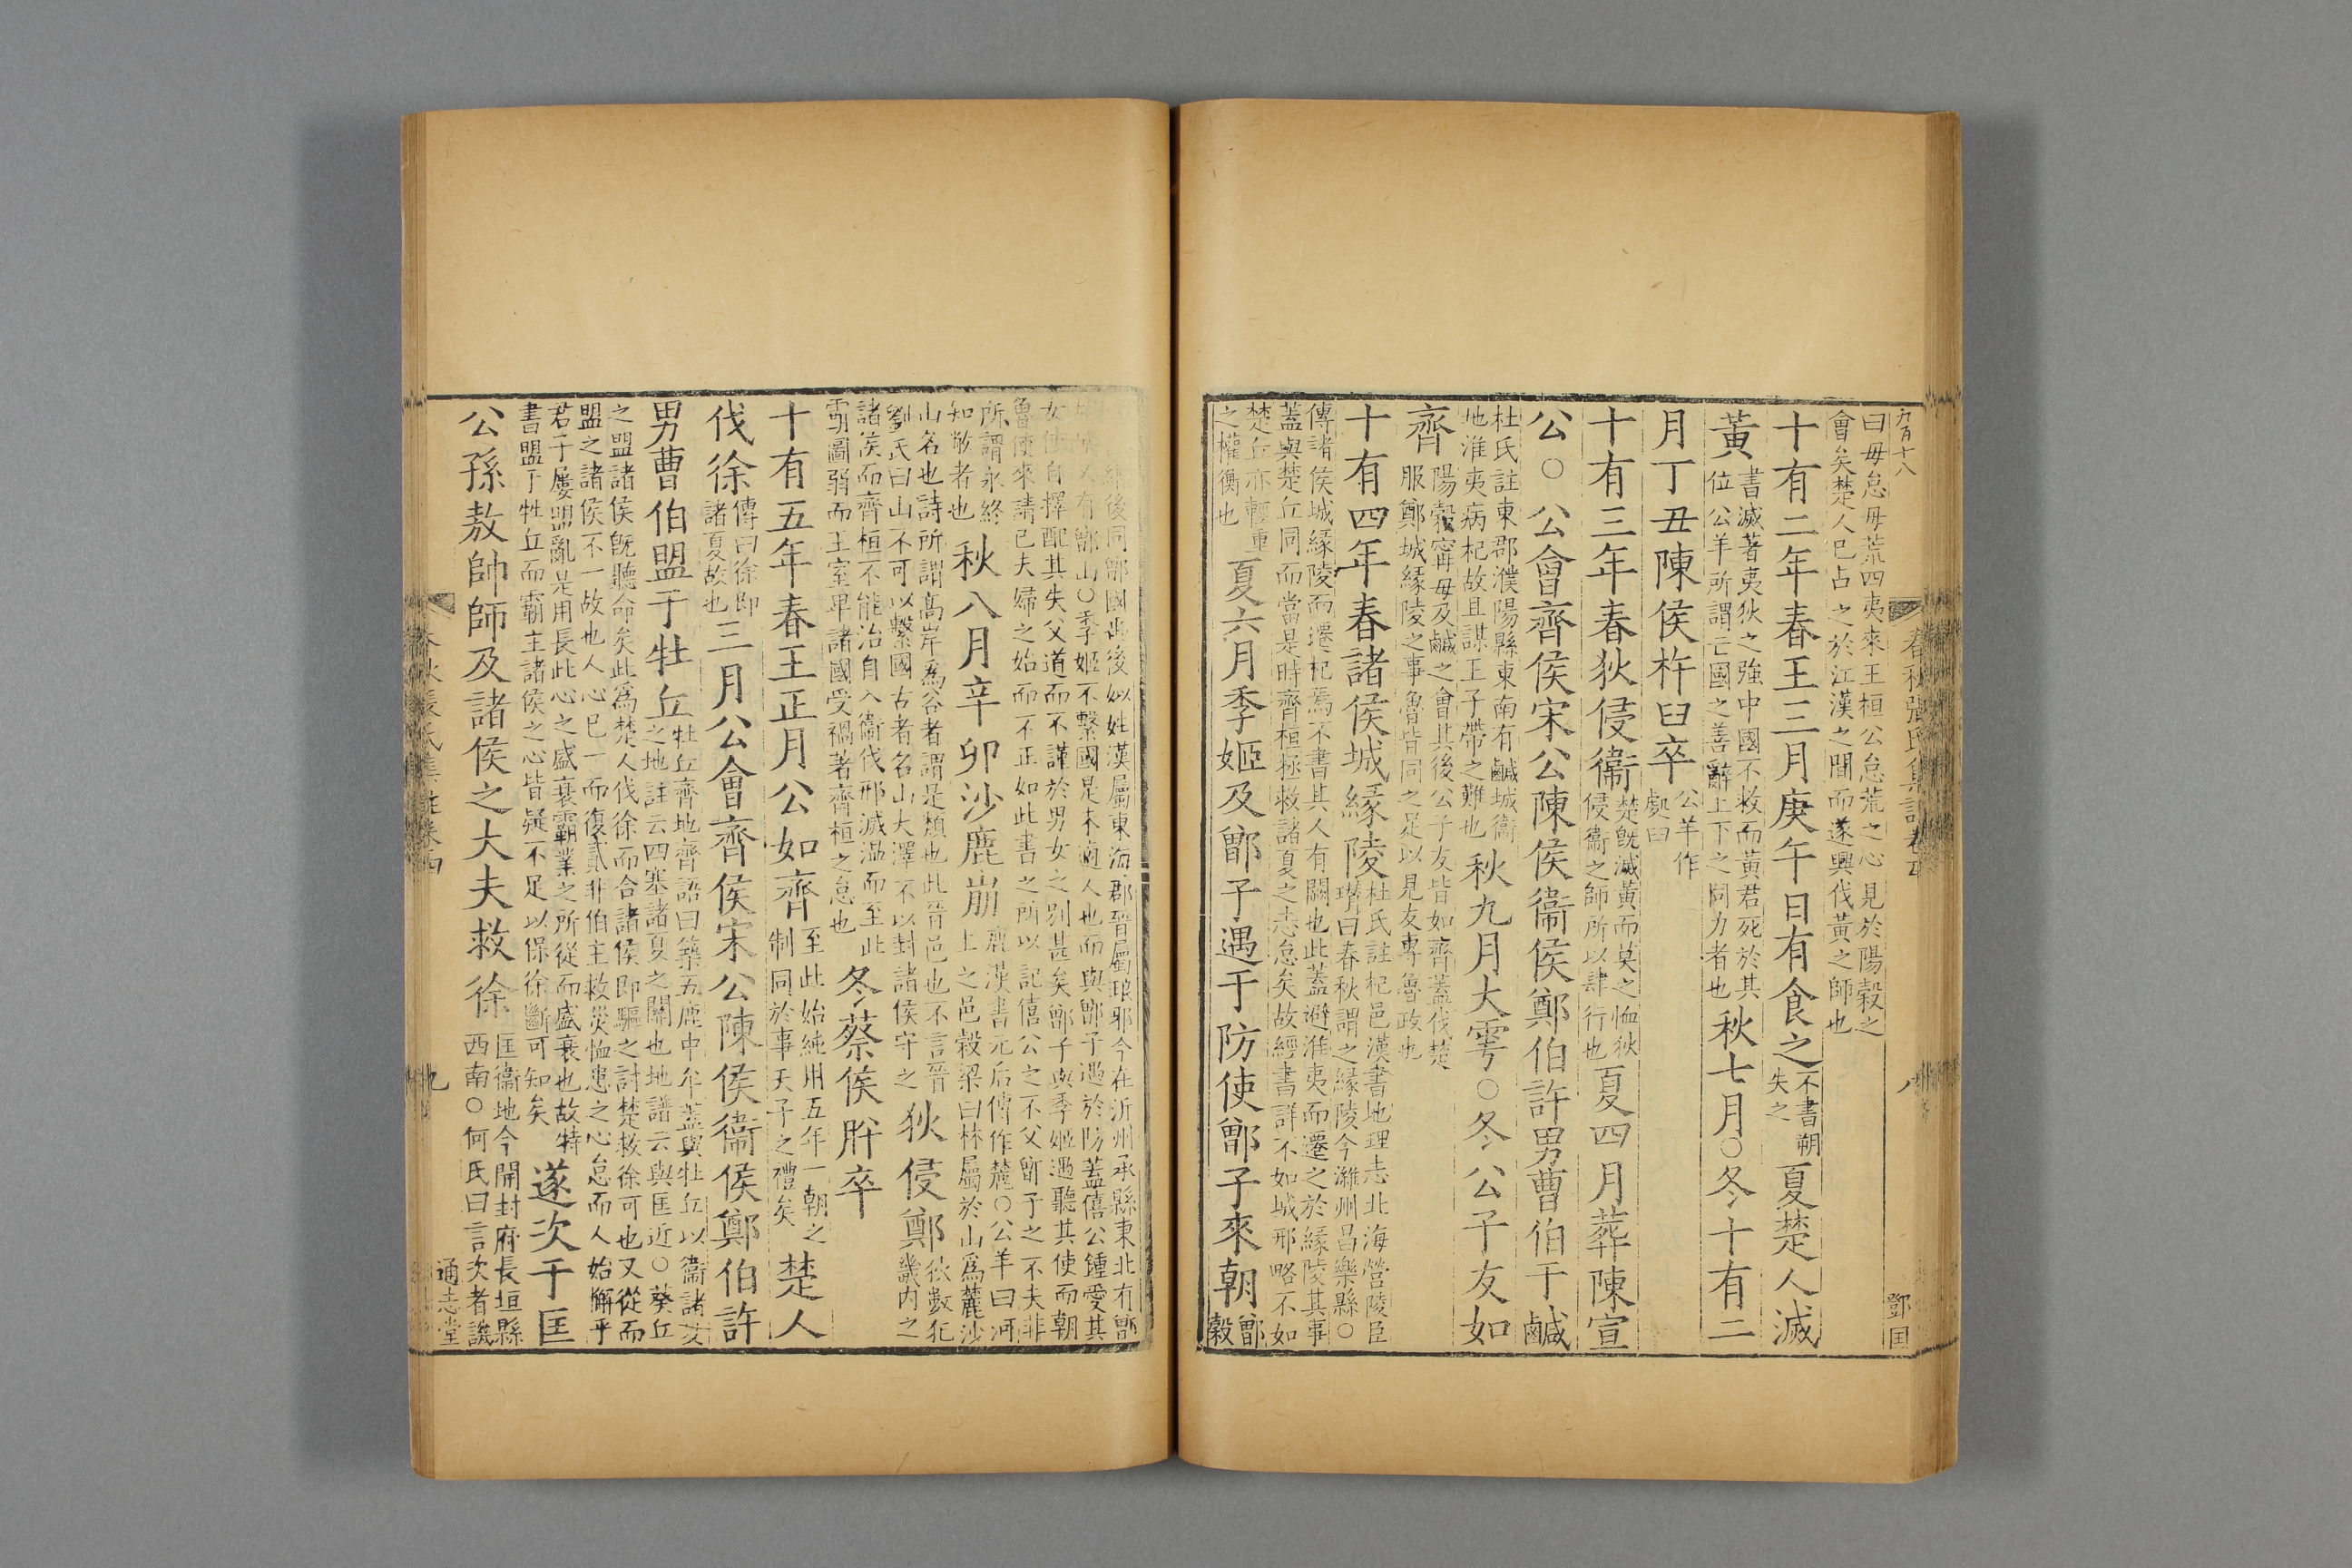 曰毋怠毋荒四夷來王桓公怠荒之心見於陽穀之
會矣楚人已占之於江漢之間而遂興伐黃之師也
十有二年春王三月庚午日有食之不書朔失之夏楚人滅
黃書滅著夷狄之強中國不救而黃君死於其位公羊所謂亡國之善辭上下之同力者也秋七月○冬十有二
月丁丑陳侯杵臼卒公羊作處臼
十有三年春狄侵衞楚旣滅黃而莫之恤狄侵衞之師所以肆行也夏四月葬陳宣
公○公會齊侯宋公陳侯衞侯鄭伯許男曹伯于鹹
杜氏註東郡濮陽縣東南有鹹城衞地淮夷病杞故且謀王子帶之難也秋九月大雩○冬公子友如
齊陽穀甯毋及鹹之會其後公子友皆如齊蓋伐楚服鄭城緣陵之事魯皆同之足以見友專魯政也
十有四年春諸侯城緣陵杜氏註杞邑漢書地理志北海營陵臣瓚曰春秋謂之緣陵今濰州昌樂縣○
傳諸侯城緣陵而遷杞焉不書其人有闕也此蓋避淮夷而遷之於緣陵其事
蓋與楚丘同而當是時齊桓拯救諸夏之志怠矣故經書詳不如城邢略不如
楚丘亦輕重之權衡也夏六月季姬及鄫子遇于防使鄫子來朝鄫穀
後同鄫國禹後姒姓漢屬東海郡晉屬琅邪今在沂州承縣東北有鄫
山○季姬不繫國是未適人也而與鄫子遇於防蓋僖公鍾愛其
女使自擇配其失父道而不謹於男女之別甚矣鄫子與季姬遇聽其使而朝
魯使來請已夫婦之始而不正如此書之所以記僖公之不父鄫子之不夫非
所謂永終知敝者也秋八月辛卯沙鹿崩鹿漢書元后傳作麓○公羊曰河上之邑穀梁曰林屬於山爲麓沙
山名也詩所謂高岸爲谷者謂是類也此晉邑也不言晉劉氏曰山不可以繫國古者名山大澤不以封諸侯守之狄侵鄭狄數犯畿內之
諸侯而齊桓不能治自入衞伐邢滅溫而至此霸圖弱而王室卑諸國受禍著齊桓之怠也冬蔡侯肸卒
十有五年春王正月公如齊至此始純用五年一朝之制同於事天子之禮矣楚人
伐徐傳曰徐卽諸夏故也三月公會齊侯宋公陳侯衞侯鄭伯許
男曹伯盟于牡丘牡丘齊地齊語曰築五鹿中牟蓋與牡丘以衞諸夏之地註云四塞諸夏之關也地譜云與匡近○葵丘
之盟諸侯旣聽命矣此爲楚人伐徐而合諸侯卽驅之討楚救徐可也又從而
盟之諸侯不一故也人心已一而復貳非伯主救災恤患之心怠而人始解乎
君子屢盟亂是用長此心之盛衰霸業之所從而盛衰也故特書盟于牡丘而霸主諸侯之心皆疑不足以保徐斷可知矣遂次于匡
公孫敖帥師及諸侯之大夫救徐匡衞地今開封府長垣縣西南○何氏曰言次者譏
春秋張氏集註卷四
八
九
通志堂